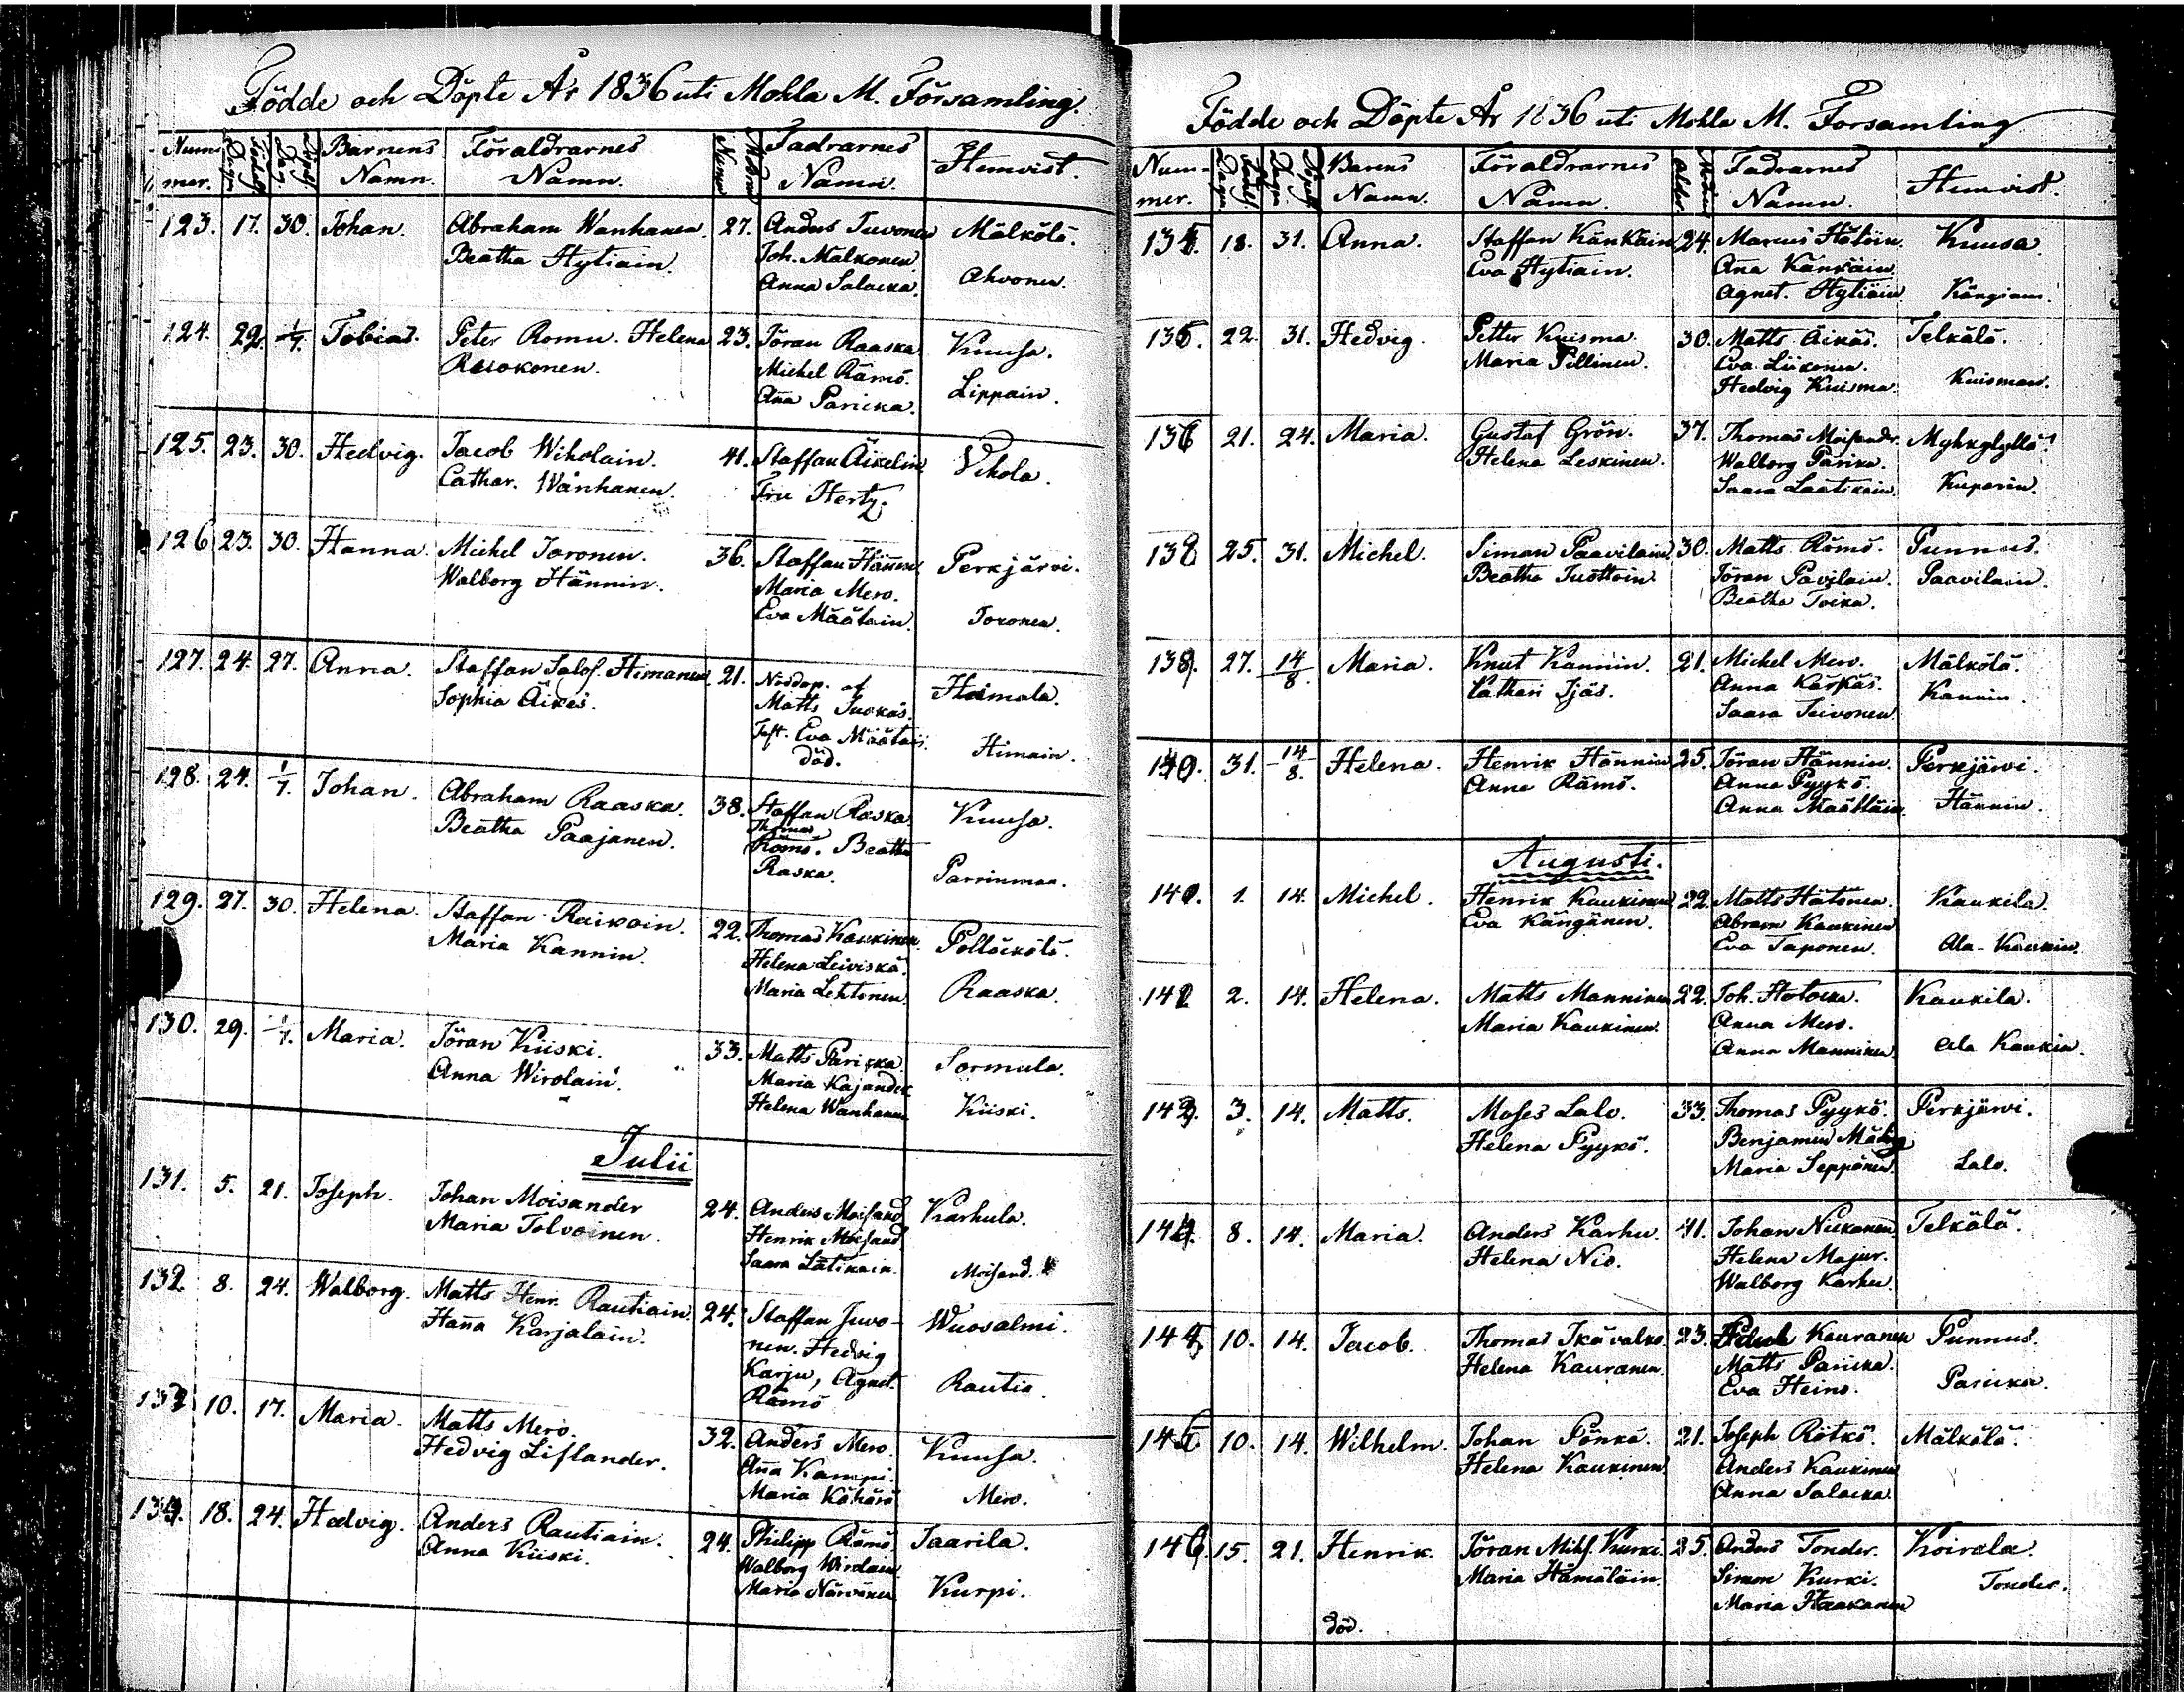 Födde och Döpte År 1836 uti Mohla M. Församling.
Nummer. Födelse Dagen Döpelse Dag Barnens Namn. Föräldrarnes Namn. Fadrarnes Namn. Hemvist.
123. 17. 30. Johan. Abraham Wanhanen. 27. Anders Tuvonen Mälkölä.
Beatha Hytiäin. Joh. Malkonen
Anna Salacka. Ahvonen.
124. 22. 1/7. Tobias. Peter Romu. Helena 23. Jöran Raaska Kuusa.
Rusokonen. Michel Rämö. Lippain.
Aña Paricka.
125. 23. 30. Hedvig. Jacob Wiholain. 41. Staffan Äikelin Vihola.
Cathar. Wänhanen. Fru Hertz.
126 23. 30. Hanna. Michel Toronen. 36. Staffan Hännin Perkjärvi.
Walborg Hännin. Maria Mero.
Eva Määtäin. Toronen.
127. 24. 27. Anna. Staffan Salos. Himanen 21. Nöddop. af Heimala.
Sophia Äikäs. Matts Juokas.
Test. Eva Määtäi. Himain.
död.
128. 24. 1/7. Johan. Abraham Raaska. 38. Staffan Raska Kuusa.
Beatha Paajanen. Thomas
Rämö. Beatha
Raska. Parrinmaa.
129. 27. 30. Helena. Staffan Raikoin. 22. Thomas Kaukinen Pöllöckölä.
Maria Kannin. Helena Leiviskä.
Maria Lehtonen Raaska.
130. 29. 1/7. Maria. Jöran Kiiski. 33. Matts Paricka Sormula.
Anna Wirolain. Maria Kajander
Helena Wanhanen Kiiski.
Julii
131. 5. 21. Joseph. Johan Moisander 24. Anders Moisand Karhula.
Maria Tolvoinen. Henrik Moisand
Saara Lätikain. Moisand.
132 8. 24. Walborg. Matts Henr. Rautiain. 24. Staffan Juvo- Wuosalmi.
Haña Karjalain. nen. Hedvig
Karju, Agnet. Rautia.
Rämö
133 10. 17. Maria. Matts Mero. 32. Anders Mero. Kuusa.
Hedvig Liflander. Aña Kampi.
Maria Köhärä Mero.
134. 18. 24. Hedvig. Anders Rautiain. 24. Philipp Rämö Saarila.
Anna Kiiski. Walborg Wirolain
Maria Närväinen Kurpi.
Födde och Döpte År 1836 uti Mohla M. Forsamling
Nummer. Barens Namn. Föräldrarnes Namn. ålder. Fadrarnes Namn. Hemvist.
135. 18. 31. Anna. Staffan Känkäin 24. Marcus Hätöin. Kuusa
Eva Hytiäin. Aña Känkäin.
Agnet. Hytiäin Kängian.
136. 22. 31. Hedvig. Petter Kuisma. 30. Matts Äikäs. Telkälä.
Maria Pillinen. Eva Liikonen.
Hedvig Kuisma. Kuisman.
21. 24. Maria. Gustaf Grön. 37. Thomas Moisander. Myhkylylä.
Helena Leskinen. Walborg Parika.
Saara Laatikain. Kuparin.
138 25. 31. Michel. Siman Paavilain 30. Matts Rämö. Punnus.
Beatha Tuottoin. Jöran Pavilain. Paavilain.
Beatha Toika.
139. 27. 14/8. Maria. Knut Kannin. 21. Michel Mero. Mälkölä.
Cathari Ijäs. Anna Kärkäs. Kannin.
Saara Teivonen.
140. 31. 14/8. Helena. Henrik Hännin 25. Jöran Hännin. Perkjärvi.
Anna Rämö. Anna Pyykö.
Anna Määttäin. Hännin.
Augusti.
1. 14. Michel. Henrik Kaukinen 22. Matts Hätönen. Kaukila.
Eva Kängänen. Abram Kaukinen
Eva Taponen. Ala-Kaukin.
142 2. 14. Helena. Matts Manninen 22. Joh. Hotocka. Kaukila.
Maria Kaukinen. Anna Mero.
Anna Manninen. Ala Kaukin.
143. 3. 14. Matts. Moses Lalo. 33. Thomas Pyykö. Perkjärvi.
Helena Pyykö. Benjamin
Maria Seppänen. Lalo.
144. 8. 14. Maria. Anders Karhu. 41. Johan Nukanen. Telkälä.
Helena Nio. Helena Majur.
Walborg Karhu.
10. 14. Jacob. Thomas Ikävalko. 23. Kauranen Punnus.
Helena Kauranen. Matts Paricka.
Eva Heino. Paricka.
10. 14. Wilhelm. Johan Pönkä. 21. Joseph Rötkö. Mälkölä.
Helena Kaukinen Anders Kaukinen
Anna Salacka.
146. 15. 21. Henrik. Jöran Mihs. Kurki. 25. Anders Tonder. Koirala.
Maria Hämäläin. Simon Kurki. Tonder.
Maria Haakanen
död.